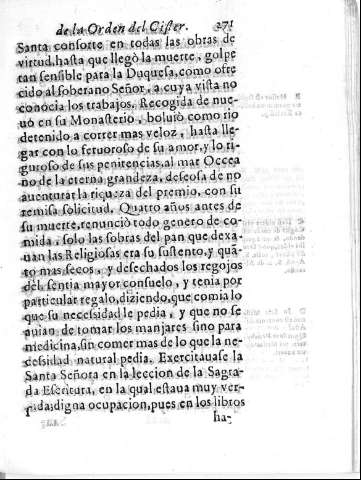 de la Orden del Cister. 271
Santa consorte en todas las obras de
virtud, hasta que llegò la muerte, golpe
tan sensible para la Duquesa, como ofre
cido al soberano Señor, a cuya vista no
conocia los trabajos. Recogida de nue-
uo en su Monasterio, boluiò como rio
detenido a correr mas veloz, hasta lle-
gar con lo feruoroso de su amor, y lo ri-
guroso de sus penitencias, al mar Occea
no de la eterna grandeza, deseosa de no
auenturar la riqueza del premio, con su
remisa solicitud. Quatro años antes de
su muerte, renunciò todo genero de co-
mida, solo las sobras del pan que dexa-
uan las Religiosas era su sustento, y quã-
to mas secos, y desechados los regojos
del sentia mayor consuelo, y tenia por
particular regalo, diziendo, que comia lo
que su necesidad le pedia, y que no se
auian de tomar los manjares sino para
medicina, sin comer mas de lo que la ne-
cessidad natural pedia. Exercitauase la
Santa Señora en la leccion de la Sagra-
da Escritura, en la qual estaua muy ver-
sada: digna ocupacion, pues en los libros
ha-